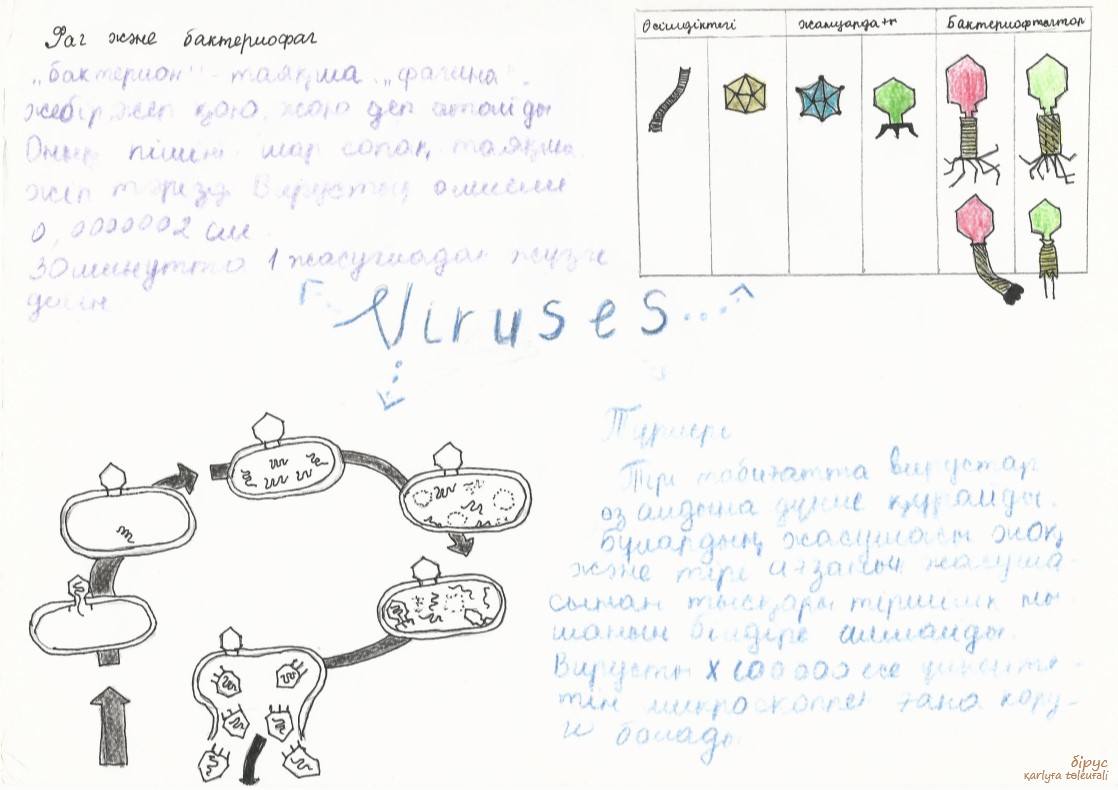 Фаг және бактериофаг
„бактерион" - таяқша „фагина" -
жебір жеп қою, жою деп аталады
Оның пішіні шар сопақ, таяқша
жіп тәрізд Вирустың өлшемі
0,0000002 см
30 минутта 1 жасушадан жүзге
дейін
Өсімдіктегі
жануарда
Бактериофагтар
Viruses
Түрлері
Тірі табиғатта вирустар
өз алдына дүние құрайды.
Бұлардың жасушасы жоқ
және тірі ағзаның жасуша-
сынан тысқары тіршілік ны
шанын білдіре алмайды.
Вирусты X 100 000 есе үлкейте-
тін микроскоппен ғана көру-
ге болады
бірус
qarlyға tөleuғali